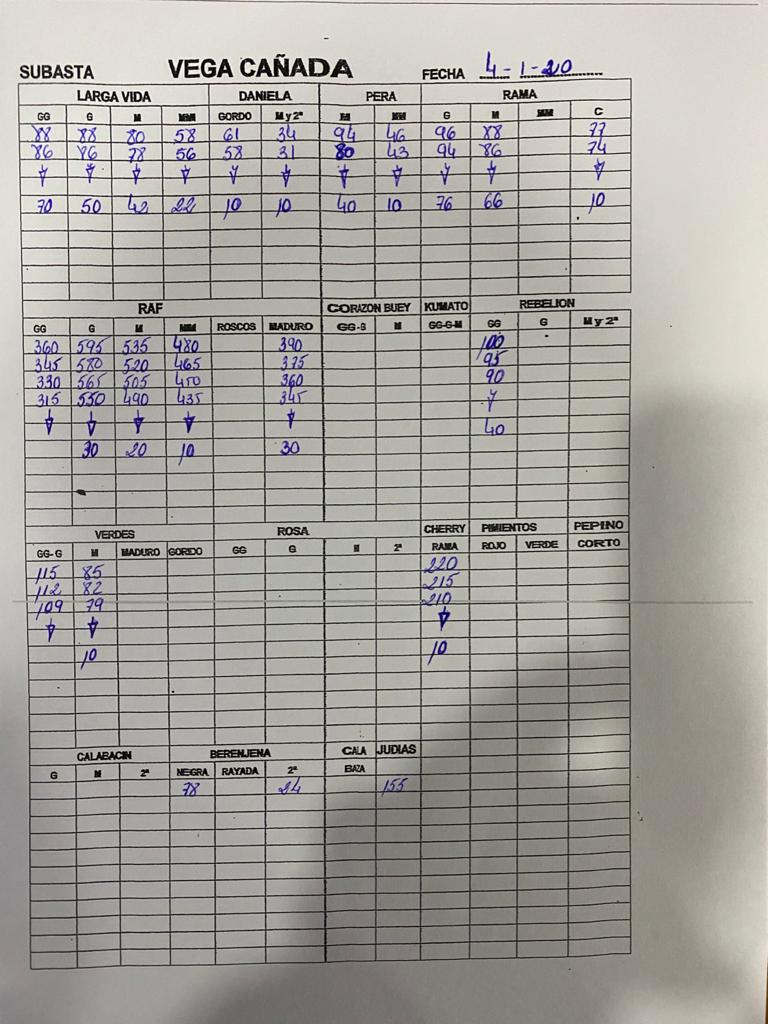 SUBASTA VEGA CAÑADA FECHA 4-1-20
LARGA VIDA DANIELA PERA RAMA
GG G M MM GORDO M y 2ª M MM G M MM C
88 88 80 58 61 34 94 46 96 88 77
86 86 78 56 58 31 80 43 94 86 74
70 50 42 22 10 10 40 10 76 66 10
RAF CORAZON BUEY KUMATO REBELION
GG G M MM ROSCOS MADURO GG-G M GG-G-M GG G M y 2ª
360 595 535 480 390 100
345 580 520 465 375 95
330 565 505 450 360 90
315 550 490 435 345
40
30 20 10 30
VERDES ROSA CHERRY PIMIENTOS PEPINO
GG-G M MADURO GORDO GG G M 2ª RAMA ROJO VERDE CORTO
115 85 220
112 82 215
109 79 210
10 10
CALABACIN BERENJENA CALA JUDIAS
G M 2ª NEGRA RAYADA 2ª BAZA
78 24 155